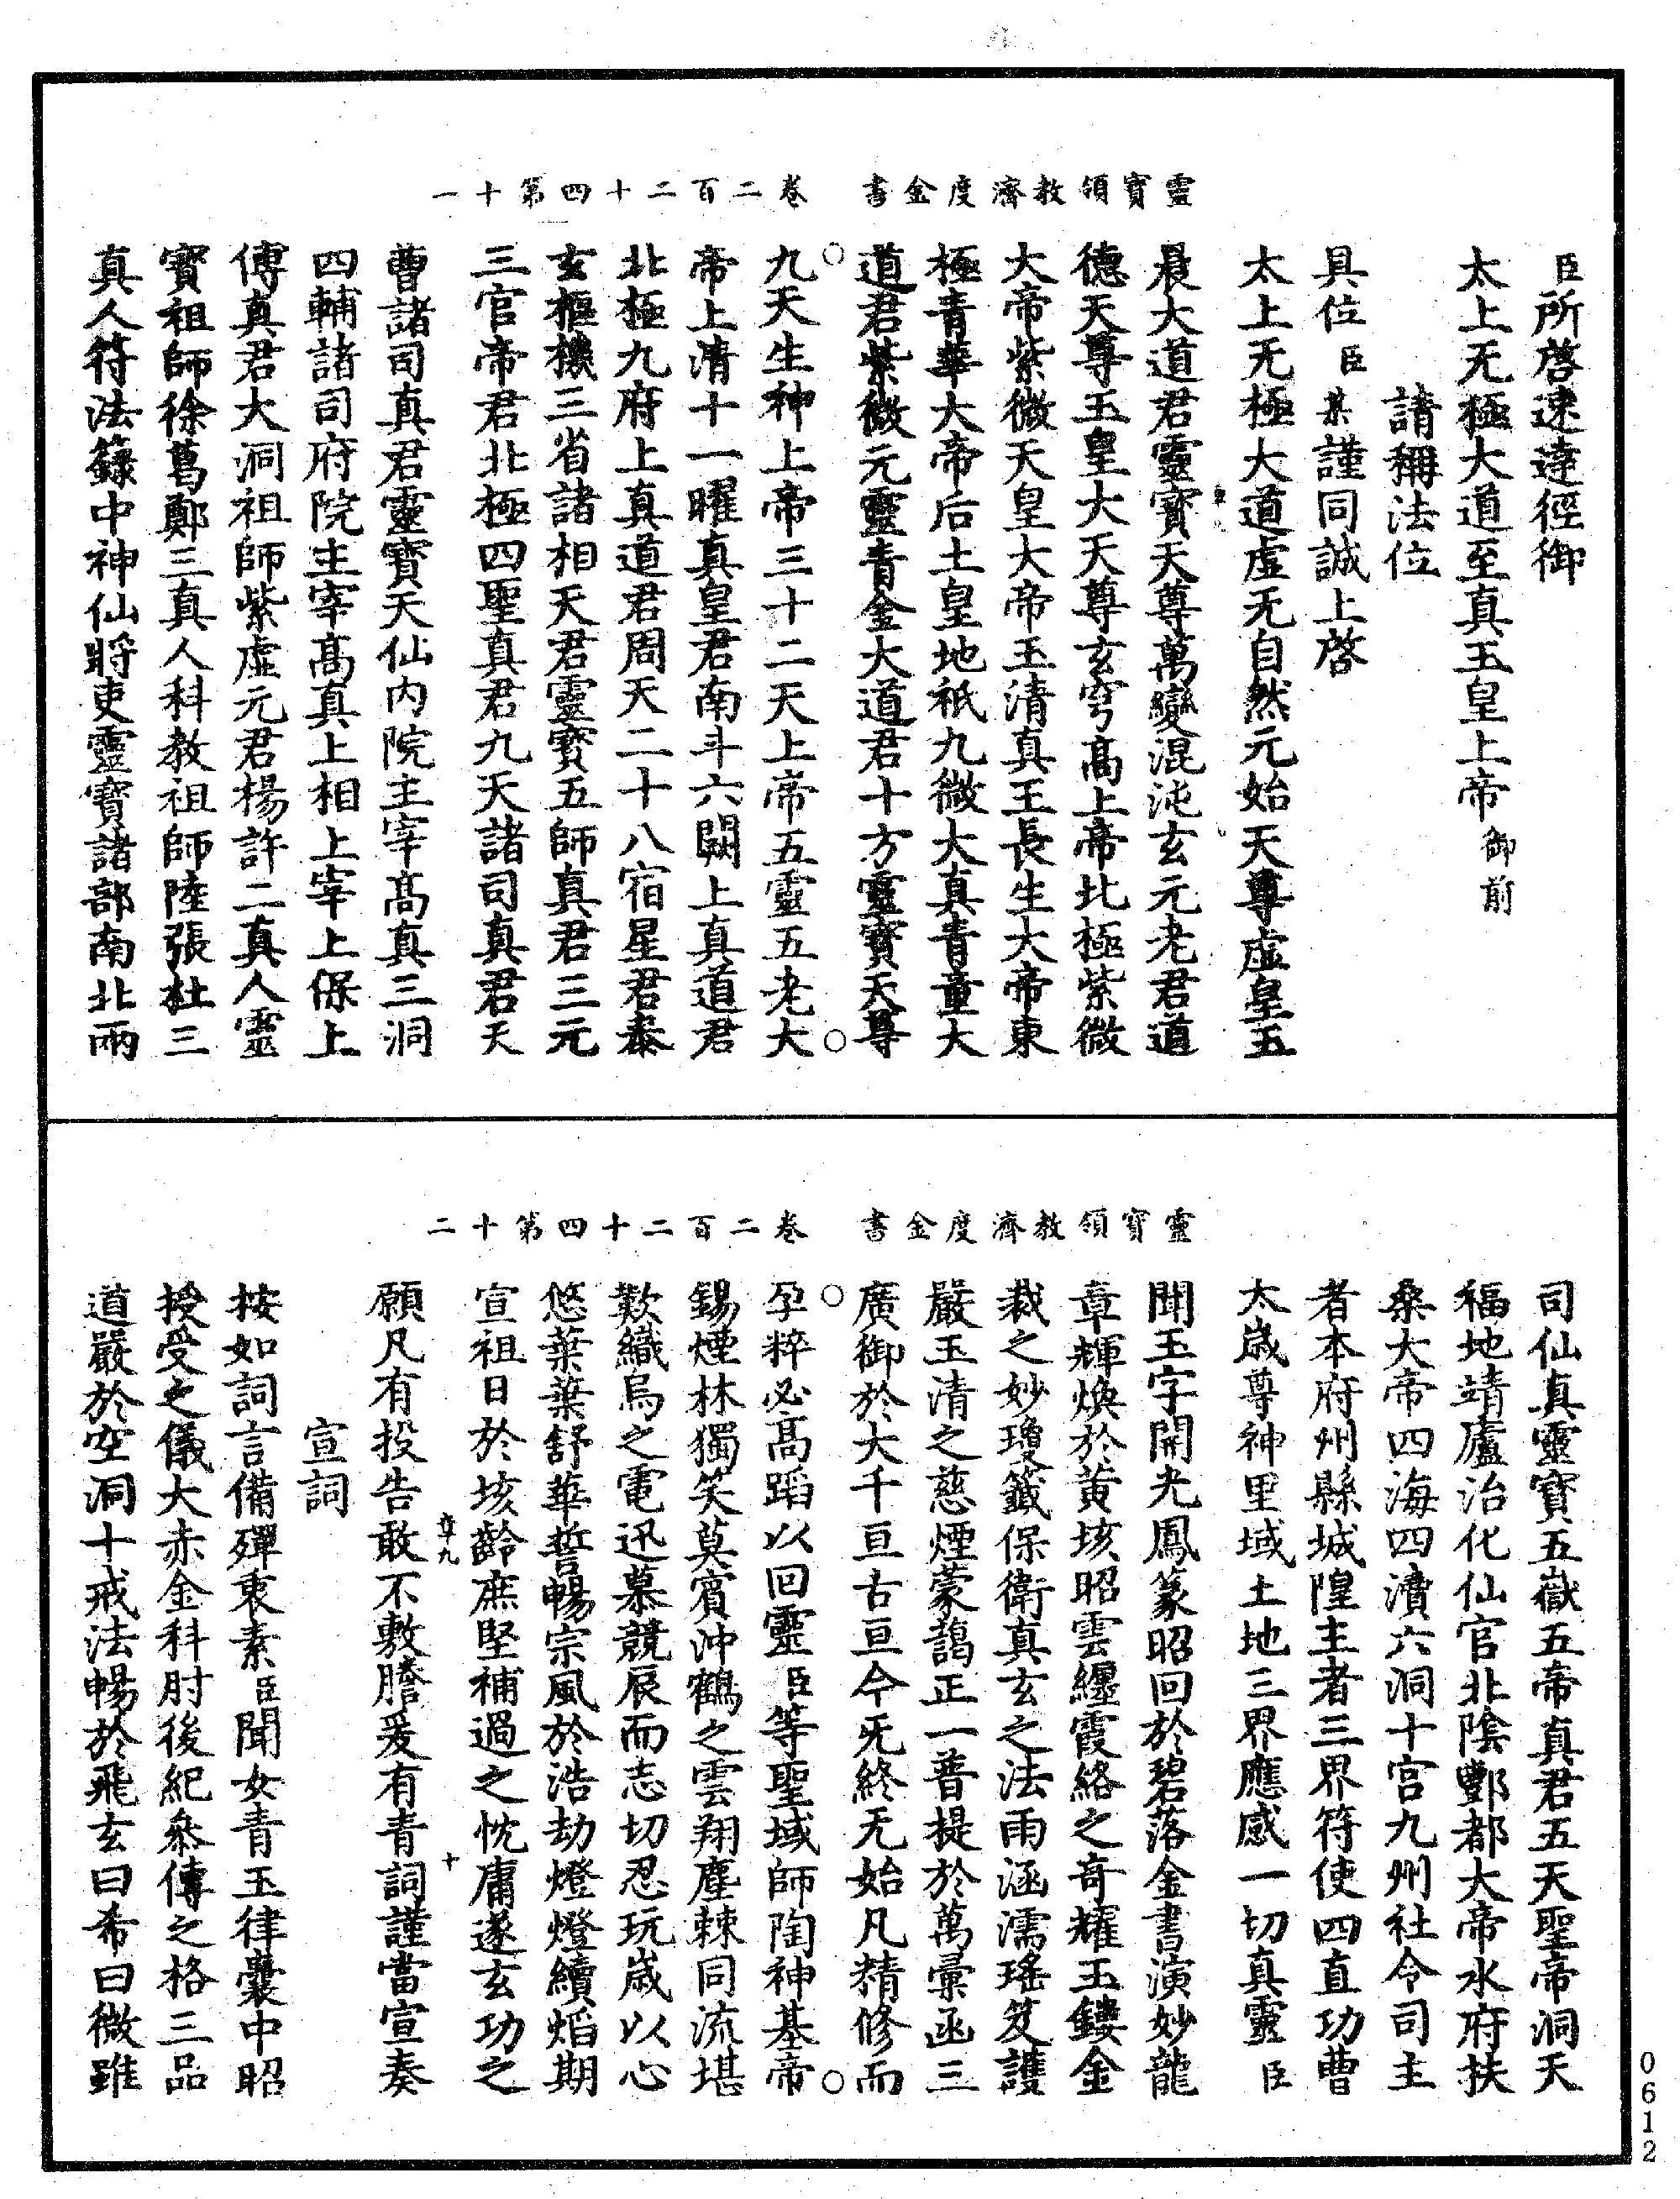 靈寶領教濟度金書 卷二百二十四第十一
臣所啓速達徑御
太上无極大道至真玉皇上帝御前
請稱法位
具位臣某謹同誠上啓
太上无極大道虛无自然元始天尊虛皇玉
晨大道君靈寶天尊萬變混沌玄元老君道
德天尊玉皇大天尊玄穹高上帝北極紫微
大帝紫微天皇大帝玉清真王長生大帝東
極青華大帝后土皇地祇九微大真青童大
道君紫微元靈青金大道君十方靈寶天尊
九天生神上帝三十二天上帝五靈五老大
帝上清十一曜真皇君南斗六闕上真道君
北極九府上真道君周天二十八宿星君泰
玄樞機三省諸相天君靈寶五師真君三元
三官帝君北極四聖真君九天諸司真君天
曹諸司真君靈寶天仙內院主宰高真三洞
四輔諸司府院主宰高真上相上宰上保上
傅真君大洞祖師紫虛元君楊許二真人靈
寶祖師徐葛鄭三真人科教祖師陸張杜三
真人符法籙中神仙將吏靈寶諸部南北兩
靈寶領教濟度金書 卷二百二十四第十二
司仙真靈寶五嶽五帝真君五天聖帝洞天
福地靖廬治化仙官北陰酆都大帝水府扶
桑大帝四海四瀆六洞十宮九州社令司主
者本府州縣城隍主者三界符使四直功曹
太歲尊神里域土地三界應感一切真靈臣
聞玉字開光鳳篆昭回於碧落金書演妙龍
章輝煥於黃垓昭雲纏霞絡之奇耀玉鏤金
裁之妙瓊籤保衛真玄之法雨涵濡瑤笈護
嚴玉清之慈煙蒙藹正一普提於萬彙函三
廣御於大千亘古亘今旡終无始凡精修而
孕粹必高蹈以回靈臣等聖域師陶神基帝
錫煙林獨笑莫賓沖鶴之雲翔塵棘同流堪
歎織烏之電迅慕競辰而志切忍玩歲以心
悠葉葉舒華誓暢宗風於浩劫燈燈續焰期
宣祖日於垓齡庶堅補過之忱庸遂玄功之
願凡有投告敢不敷謄爰有青詞謹當宣奏
宣詞
按如詞言備殫衷素臣聞女青玉律囊中昭
授受之儀大赤金科肘後紀叅傳之格三品
道嚴於空洞十戒法暢於飛玄曰希曰微雖
0612